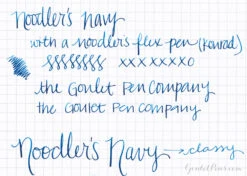 Noodler's Navy
with a noodler's flex pen (Konrad)
xxxxxxxo
the Goulet Pen Company
the Goulet Pen Company
Noodler's Navy → classy
GouletPens.com